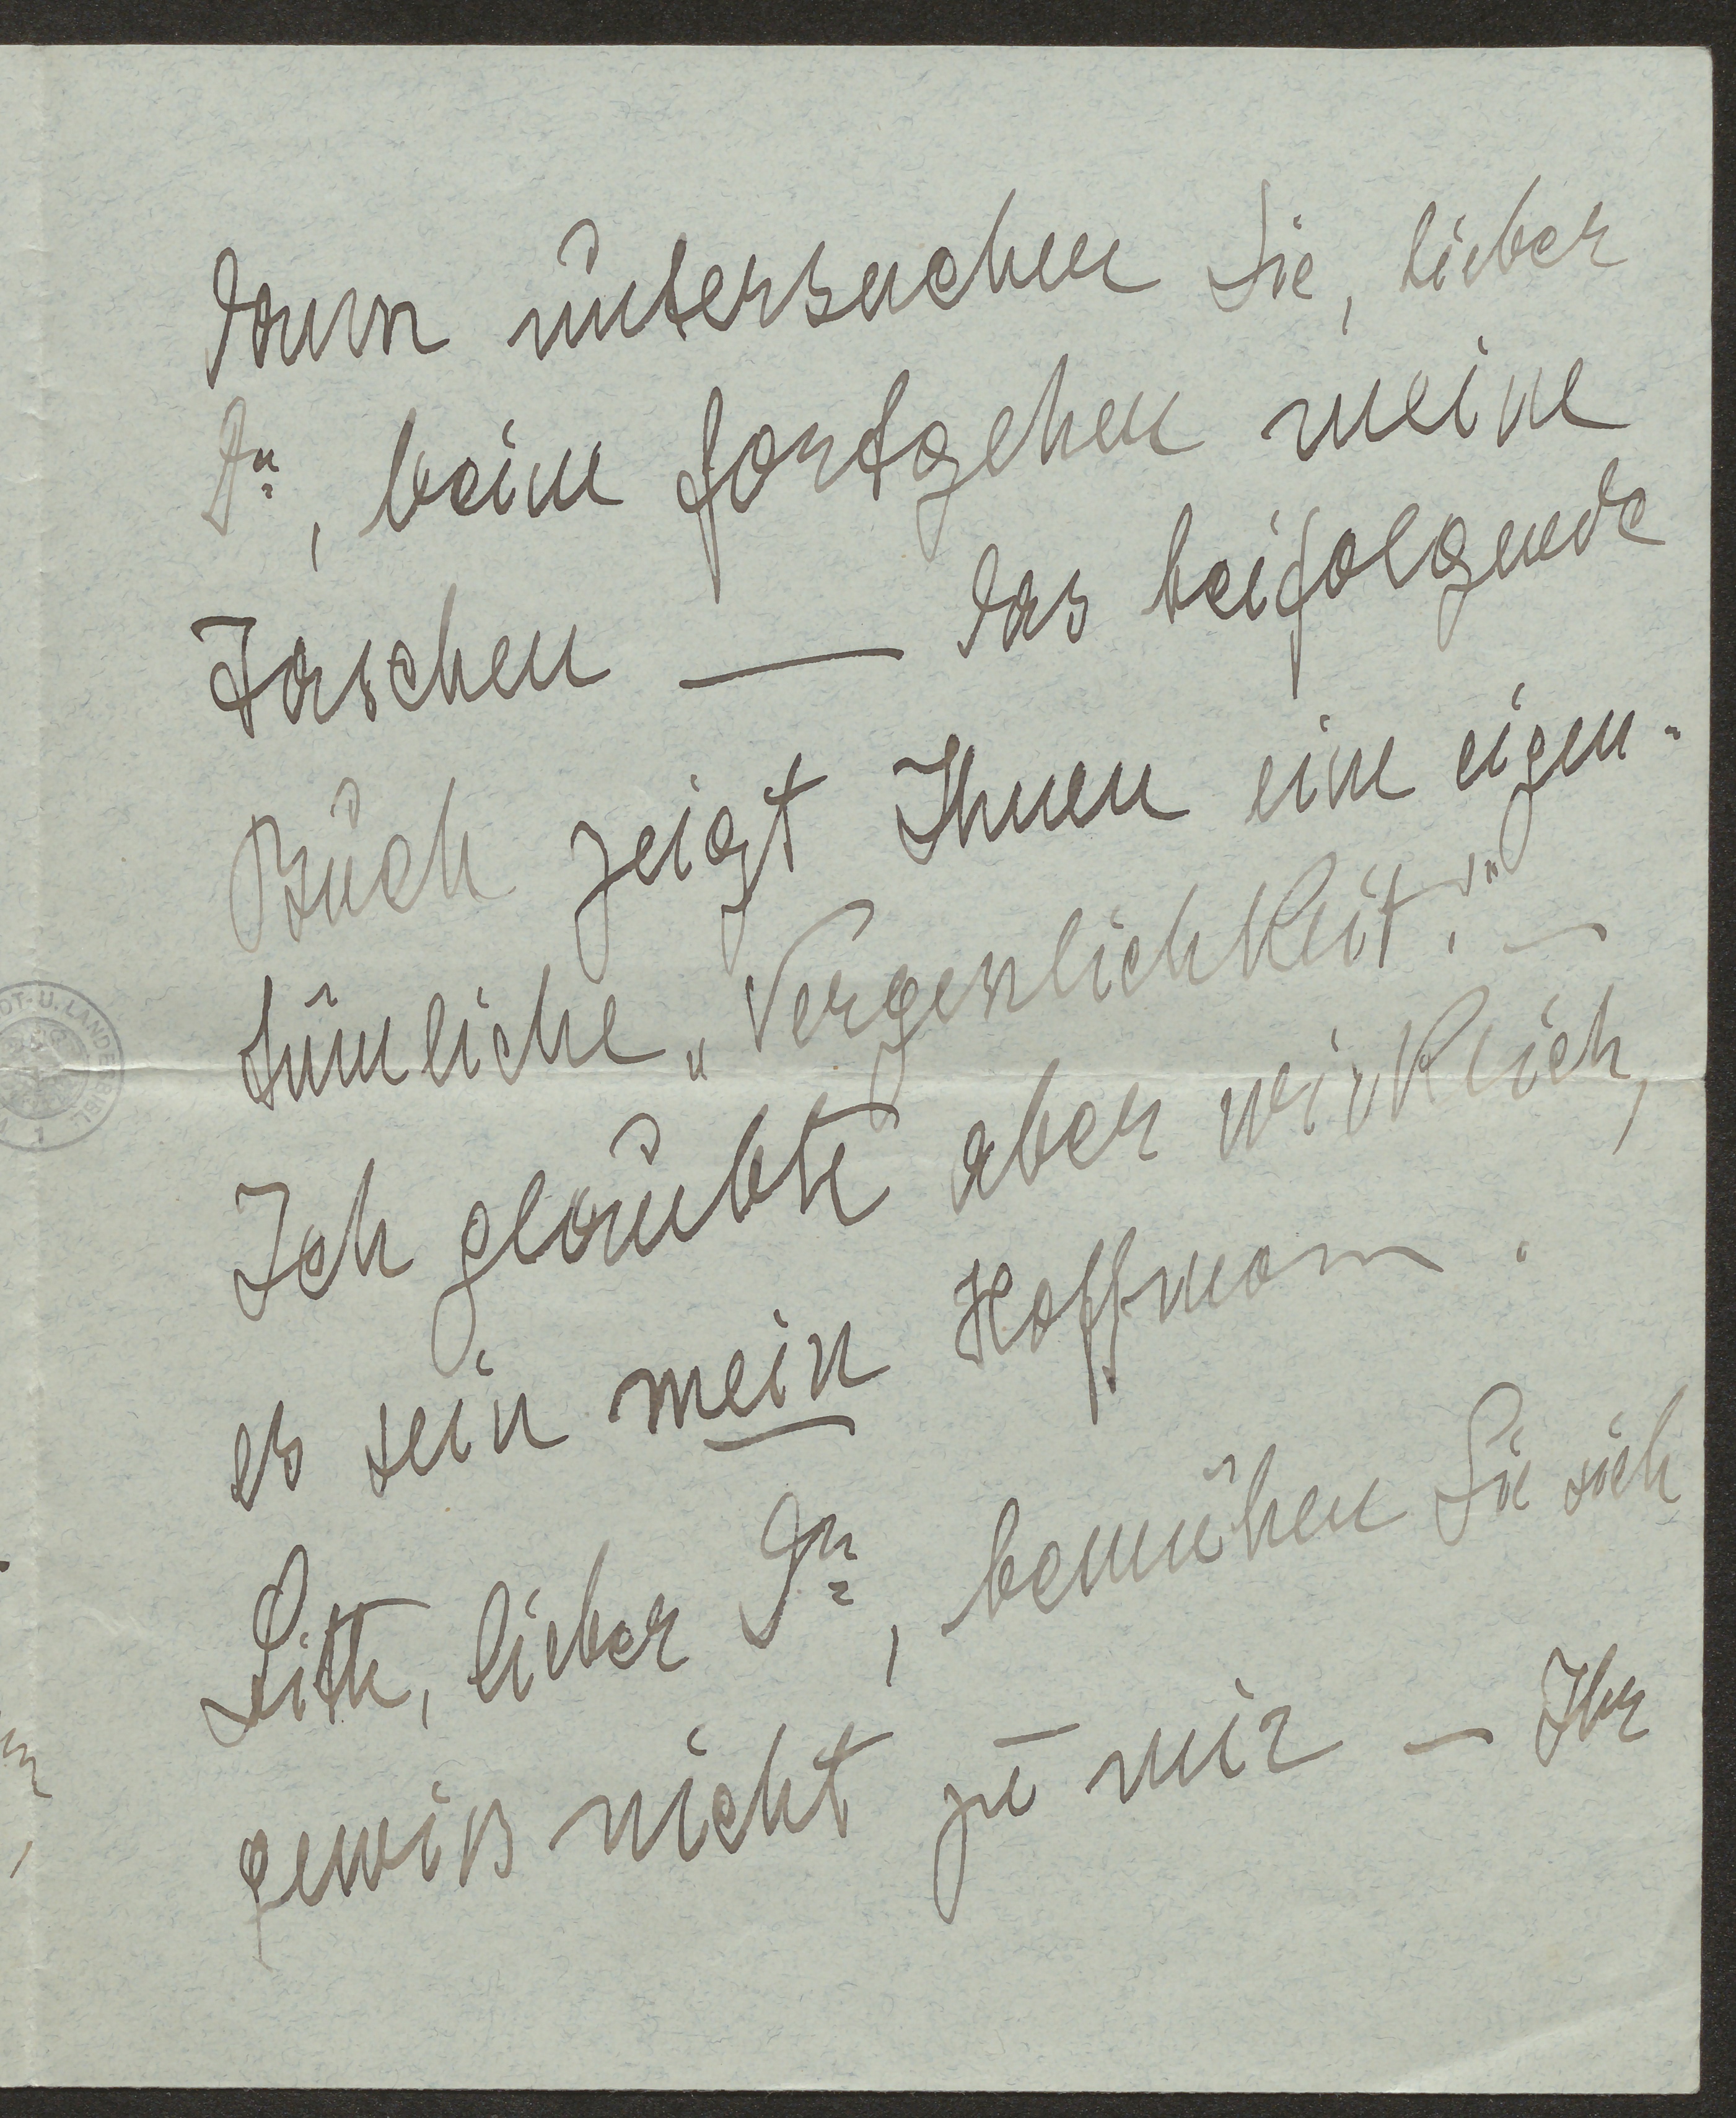 dann untersuchen Sie, lieber
Dr, beim fortgehen meine
Taschen — das beifolgende
Buch zeigt Ihnen eine eigen-
tümliche „Vergeslichkeit!" —
Ich glaubte aber wirklich,
es sein mein Hoffmann.
Bitte, lieber Dr, bemühen Sie sich
gewiss nicht zu mir — Ihr